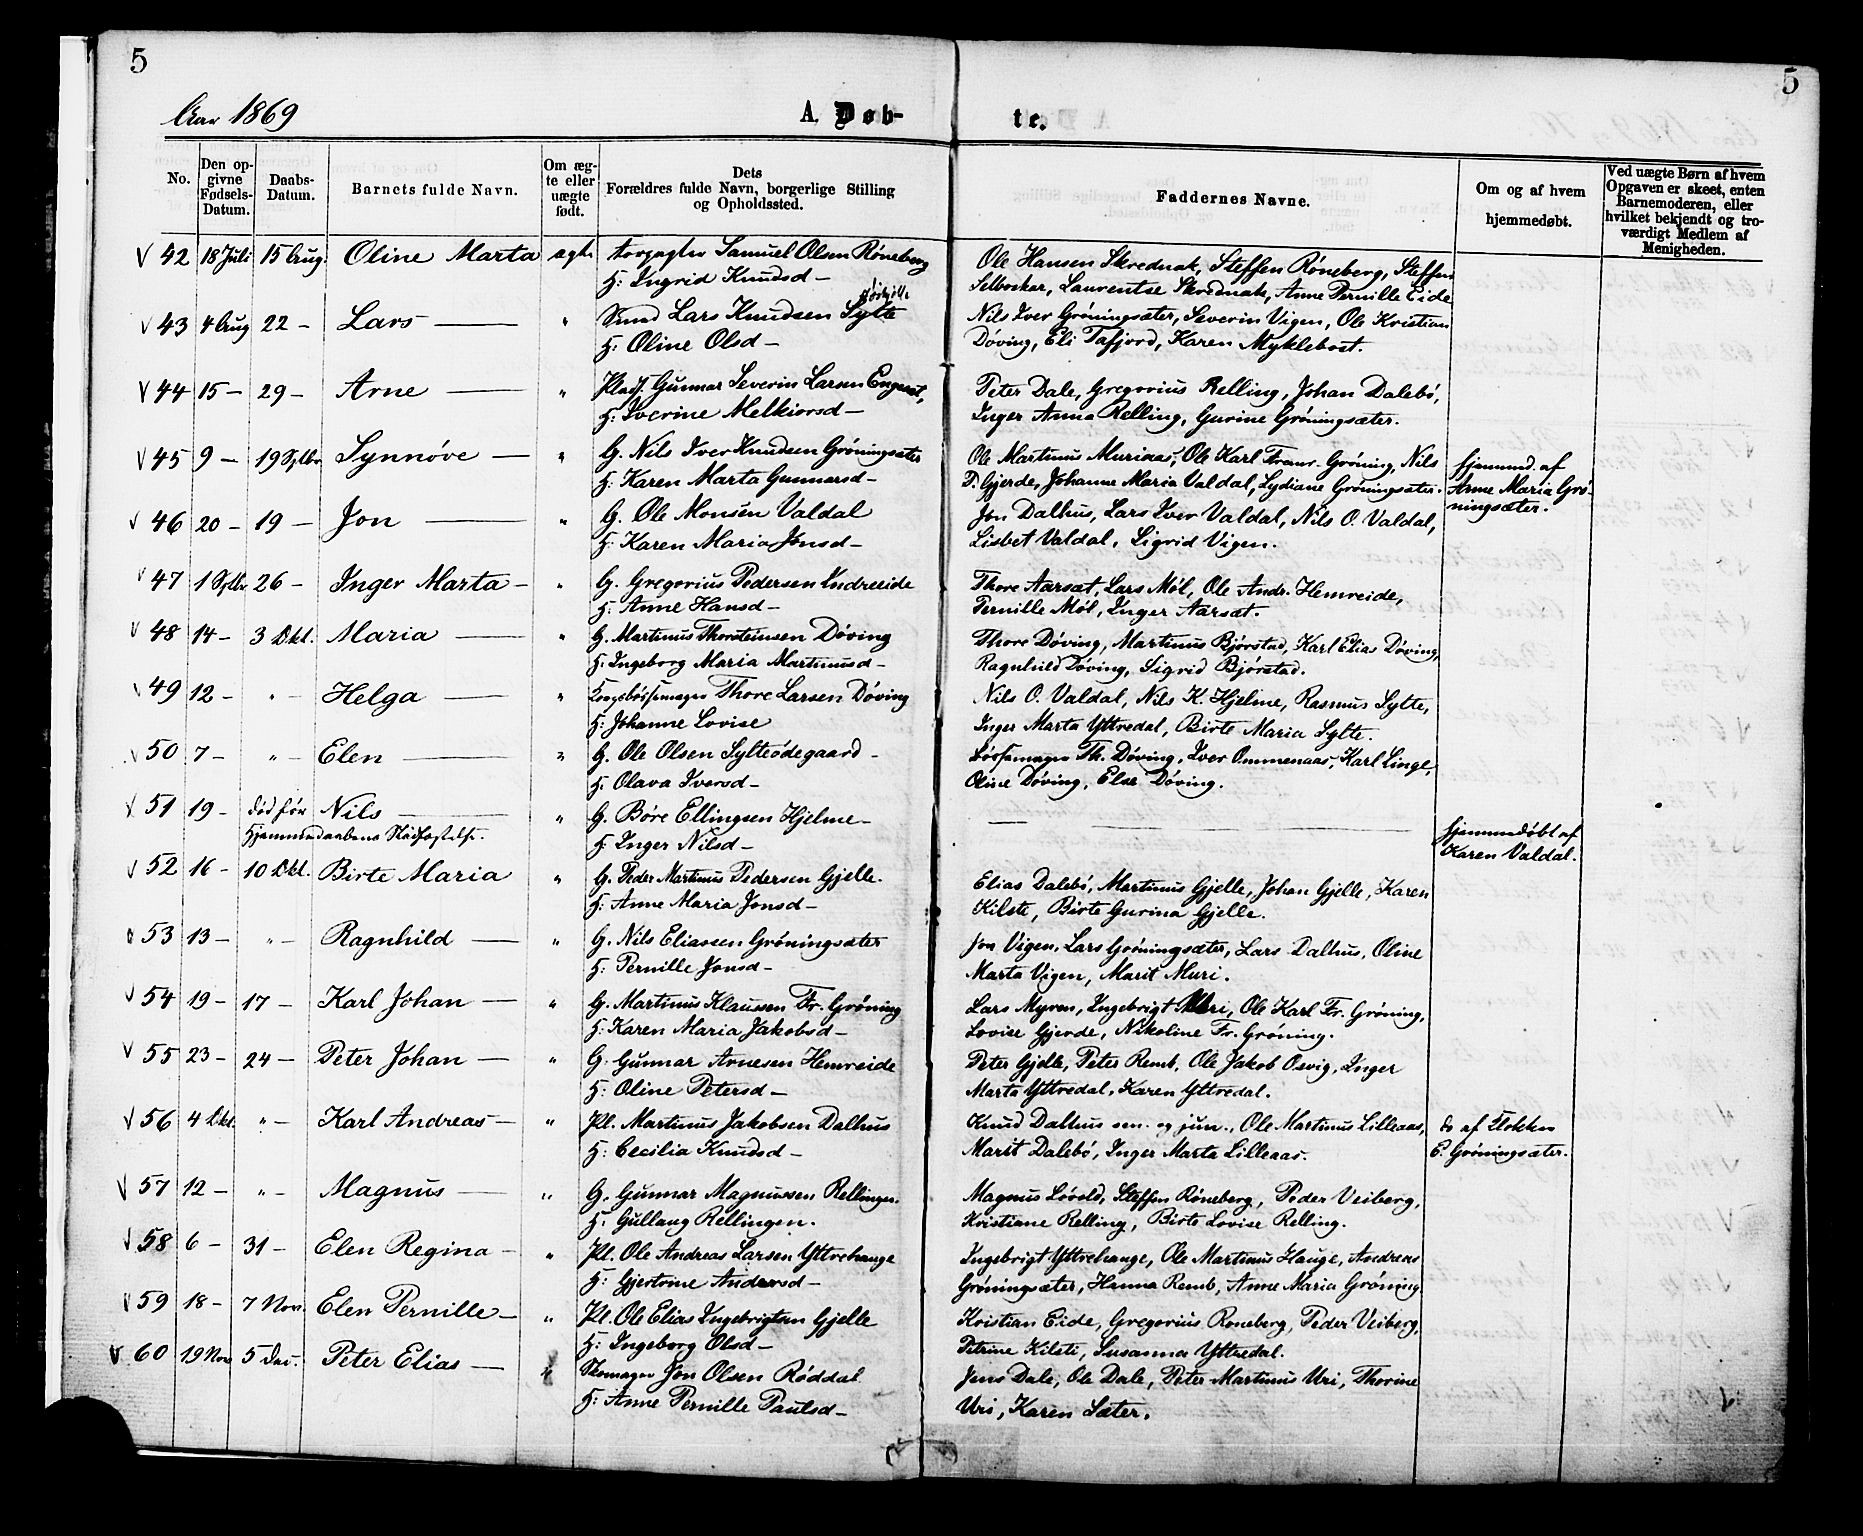 5
5
Aar 1869
A. Døb-
te.
No.
Den op-
givne
Fødsels-
Datum.
Daabs-
Datum.
Barnets fulde Navn.
Om æg-
te eller
uægte
født.
Dets
Forældres fulde Navn, borgerlige Stilling
og Opholdssted.
Faddernes Navne.
Om og af hvem
hjemmedøbt.
Ved uægte Børn af hvem
Opgaven er skeet, enten
Barnemoderen, eller
hvilket bekjendt og tro-
værdigt Medlem af
Menigheden.
42 18 Juli 15 Aug. Oline Marta ægte Samuel Olsen Røneberg
H: Ingrid Knudsd –
Ole Hansen Skrednak, Steffen Røneberg, Steffen
Selboskar, Laurentse Skrednak, Anne Pernille Eide
43 4 Aug 22 – Lars — " Lars Knudsen Sylte
H: Oline Olsd –
Nils Iver Grøningsæter, Severin Vigen, Ole Kristian
Døving, Eli Tafjord, Karen Myklebost.
44 15 – 29 – Arne — " Gunnar Severin Larsen Engeset,
H: Iverine Melkiorsd –
Peter Dale, Gregorius Relling, Johan Dalebø,
Inger Anna Relling, Gurine Grøningsæter.
45 9 – 19 Sptbr Synnøve — " G. Nils Iver Knudsen Grøningsæter
H: Karen Marta Gunnarsd –
Ole Martinus Muriaas, Ole Karl Fremr. Grøning, Nils
P. Gjerde, Johanne Maria Valdal, Lydiane Grøningsæter.
hjemmed. af
Anne Maria Grø-
ningsæter.
46 20 – 19 – Jon — " G. Ole Monsen Valdal
H: Karen Maria Jonsd –
Jon Dalhus, Lars Iver Valdal, Nils O. Valdal,
Lisbet Valdal, Sigrid Vigen.
47 1 Sptbr 26 – Inger Marta – " G. Gregorius Pedersen Indreeide
H: Anne Hansd –
Thore Aarsæt, Lars Møl, Ole Andr. Hemreide,
Pernille Møl, Inger Aarsæt.
48 14 – 3 Okt. Maria — " G. Martinus Thorsteinsen Døving
H: Ingeborg Maria Martinusd –
Thore Døving, Martinus Bjørstad, Karl Elias Døving,
Ragnhild Døving, Sigrid Bjørstad.
49 12 – " – Helga — " Thore Larsen Døving
H: Johanne Lovise
Nils O. Valdal, Nils K. Hjelme, Rasmus Sylte,
Inger Marta Yttredal, Birte Maria Sylte.
50 7 – " – Elen — " G. Ole Olsen Sylteødegaard –
H: Olava Iversd –
Børsemager Th. Døving, Iver Ommenaas, Karl Linge,
Oline Døving, Else Døving.
51 19 – død før Nils — " G. Børe Ellingsen Hjelme –
Hjemmedaabens Stadfæstelse. H: Inger Nilsd –
hjemmedøbt af
Karen Valdal.
52 16 – 10 Okt. Birte Maria " G. Peder Martinus Pedersen Gjelle.
H: Anne Maria Jonsd –
Elias Dalebø, Martinus Gjelle, Johan Gjelle, Karen
Kilste, Birte Gurina Gjelle.
53 13 – " – Ragnhild — " G. Nils Eliassen Grøningsæter
H: Pernille Jonsd –
Jon Vigen, Lars Grøningsæter, Lars Dalhus, Oline
Marta Vigen, Marit Muri.
54 19 – 17 – Karl Johan — " G. Martinus Klaussen Fr. Grøning
H: Karen Maria Jakobsd –
Lars Myren, Ingebrigt Muri, Ole Karl Fr. Grøning,
Lovise Gjerde, Nikoline Fr. Grøning.
55 23 – 24 – Peter Johan — " G. Gunnar Arnesen Hemreide
H: Oline Petersd –
Peter Gjelle, Peter Remb, Ole Jakob Osvig, Inger
Marta Yttredal, Karen Yttredal.
56 4 Okt. " – Karl Andreas – " Pl. Martinus Jakobsen Dalhus
H: Cecilia Knudsd –
Knud Dalhus sen. og jun., Ole Martinus Lilleaas,
Marit Dalebø, Inger Marta Lilleaas.
do af Klokker
E. Grøningsæter.
57 12 – " – Magnus — " G. Gunnar Magnussen Rellingen.
H: Gullaug Rellingen.
Magnus Løvold, Steffen Røneberg, Peder Veiberg,
Kristiane Relling, Birte Lovise Relling.
58 6 – 31 – Elen Regina – " Pl. Ole Andreas Larsen Yttrehauge
H: Gjertrine Andersd –
Ingebrigt Yttrehauge, Ole Martinus Hauge, Andreas
Grøningsæter, Hanna Remb, Anne Maria Grøning
59 18 – 7 Nov. Elen Pernille – " Pl. Ole Elias Ingebrigtsen Gjelle
H: Ingeborg Olsd –
Kristian Eide, Gregorius Roneberg, Peder Veiberg,
Petrine Kilsti, Susanna Yttredal.
60 19 Nov 5 Dec. Peter Elias — " Skomager Jon Olsen Røddal
H: Anne Pernille Paulsd –
Jens Dale, Ole Dale, Peter Martinus Uri, Thorine
Uri, Karen Sæter.